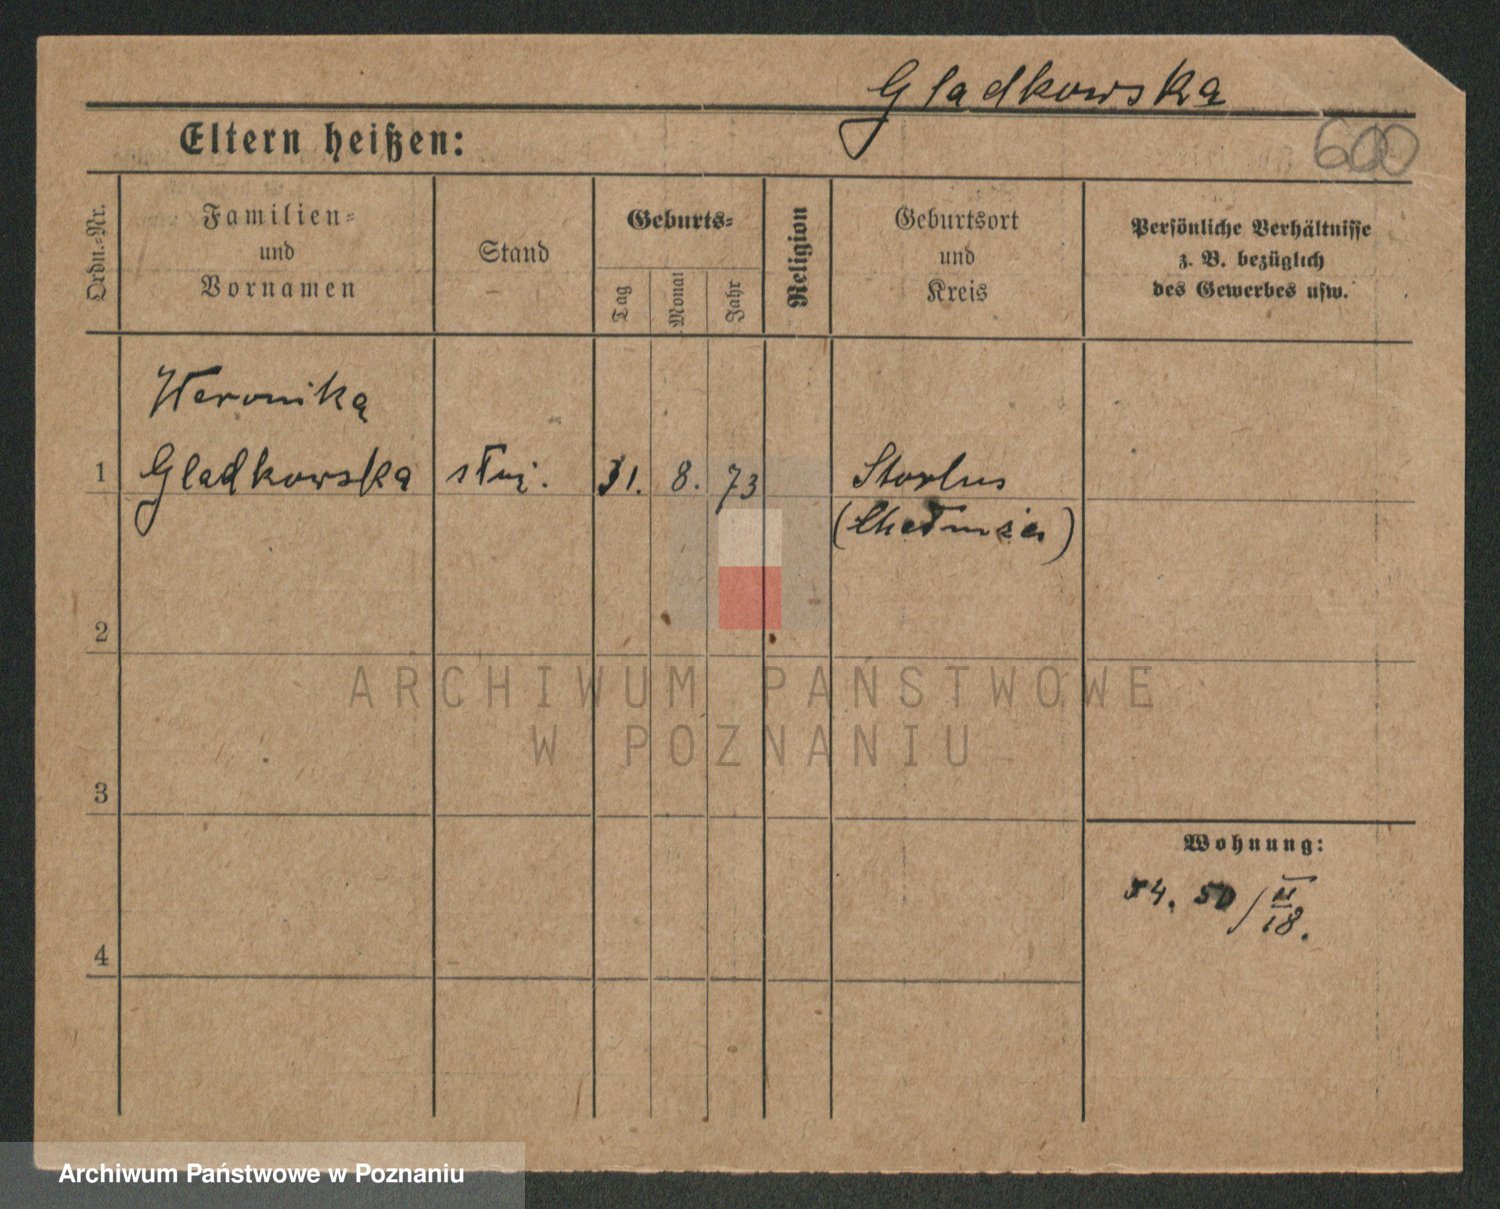 Gladkowska
Eltern heißen:
600
Ordn.=Nr.
Familien=
und
Vornamen
Stand
Geburts=
Tag
Monat
Jahr
Religion
Geburtsort
und
Kreis
Persönliche Verhältnisse
z. B. bezüglich
des Gewerbes usw.
Weronika
1 Gladkowska służ. 31. 8. 73 Storlus
(Chełmża)
2
ARCHIWUM PAŃSTWOWE
W POZNANIU
3
Wohnung:
54. 50/II
18.
4
Archiwum Państwowe w Poznaniu